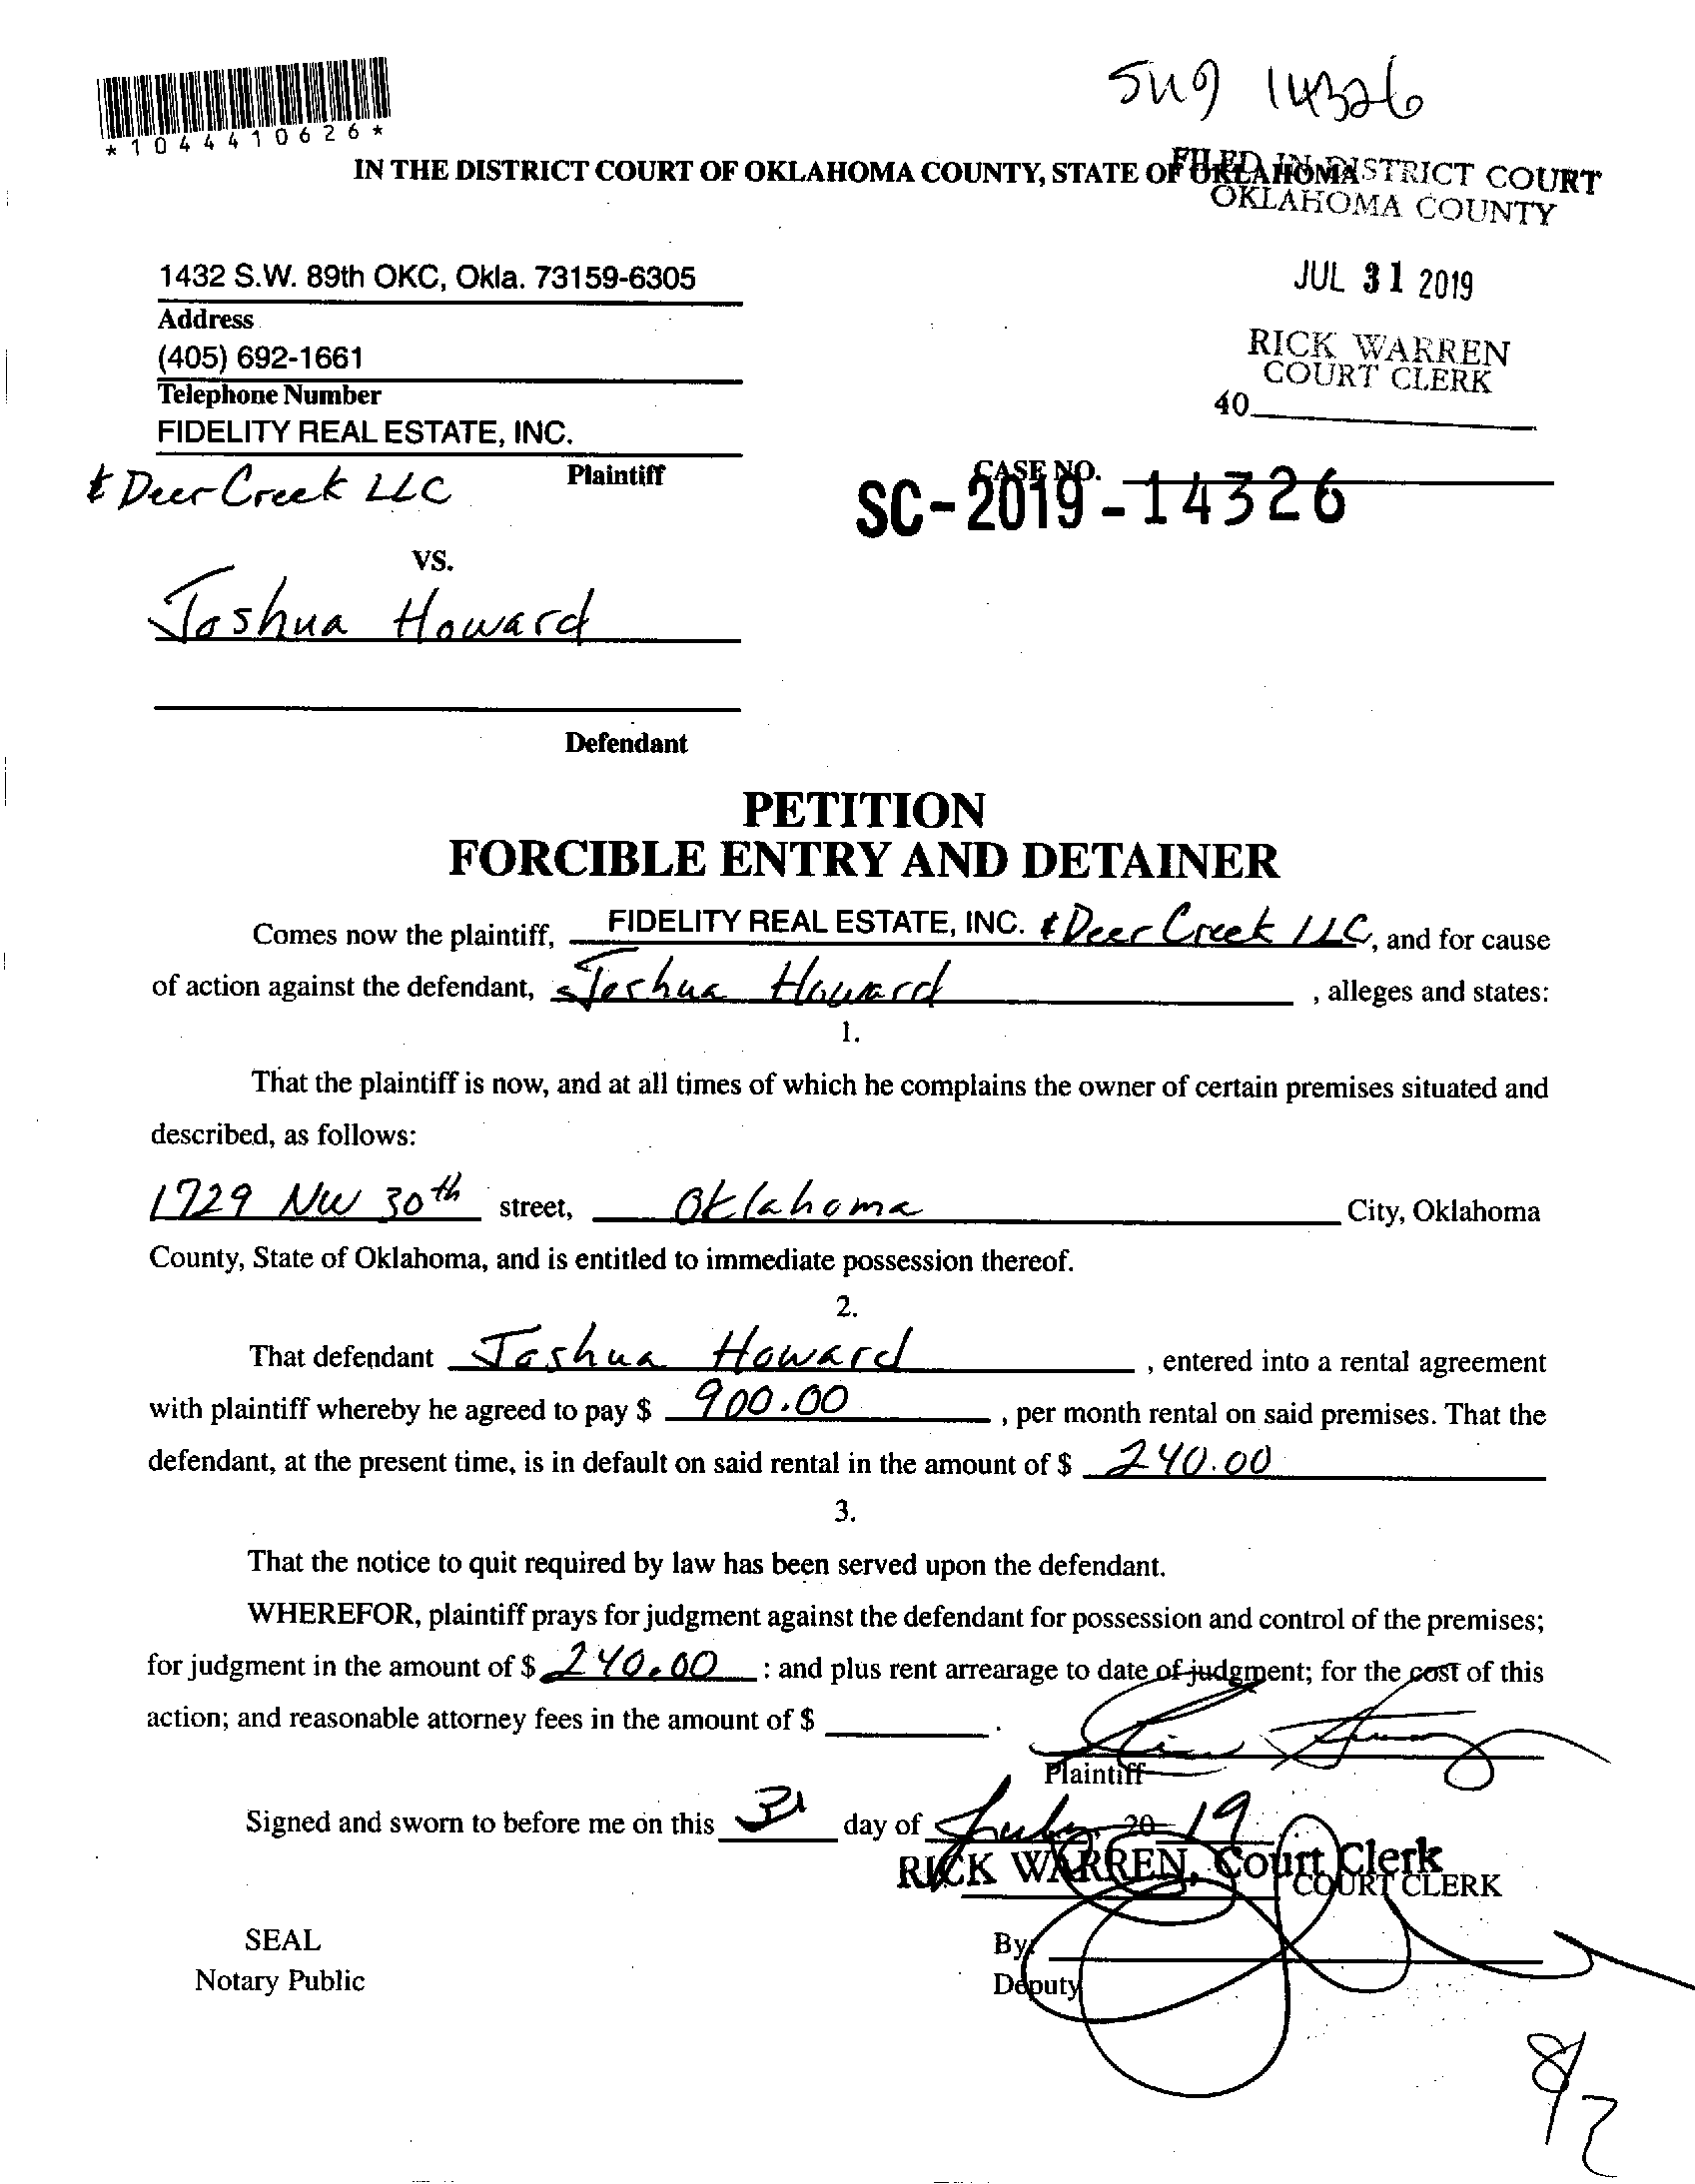 *1044410626*
IN THE DISTRICT COURT OF OKLAHOMA COUNTY, STATE OF OKLAHOMA
FILED IN DISTRICT COURT
OKLAHOMA COUNTY
JUL 31 2019
RICK WARREN
COURT CLERK
40
1432 S.W. 89th OKC, Okla. 73159-6305
Address
(405) 692-1661
Telephone Number
FIDELITY REAL ESTATE, INC.
& Deer Creek LLC
Plaintiff
CASE NO.
SC-2019-14326
VS.
Joshua Howard
Defendant
PETITION
FORCIBLE ENTRY AND DETAINER
Comes now the plaintiff, FIDELITY REAL ESTATE, INC. & Deer Creek LLC, and for cause
of action against the defendant, Joshua Howard, alleges and states:
1.
That the plaintiff is now, and at all times of which he complains the owner of certain premises situated and
described, as follows:
1729 NW 30th street, Oklahoma City, Oklahoma
County, State of Oklahoma, and is entitled to immediate possession thereof.
2.
That defendant Joshua Howard, entered into a rental agreement
with plaintiff whereby he agreed to pay $ 900.00, per month rental on said premises. That the
defendant, at the present time, is in default on said rental in the amount of $ 240.00
3.
That the notice to quit required by law has been served upon the defendant.
WHEREFOR, plaintiff prays for judgment against the defendant for possession and control of the premises;
for judgment in the amount of $ 240.00 : and plus rent arrearage to date of judgment; for the cost of this
action; and reasonable attorney fees in the amount of $ .
Plaintiff
Signed and sworn to before me on this 31 day of July, 20 19
RICK WARREN, Court Clerk
COURT CLERK
SEAL
Notary Public
By:
Deputy